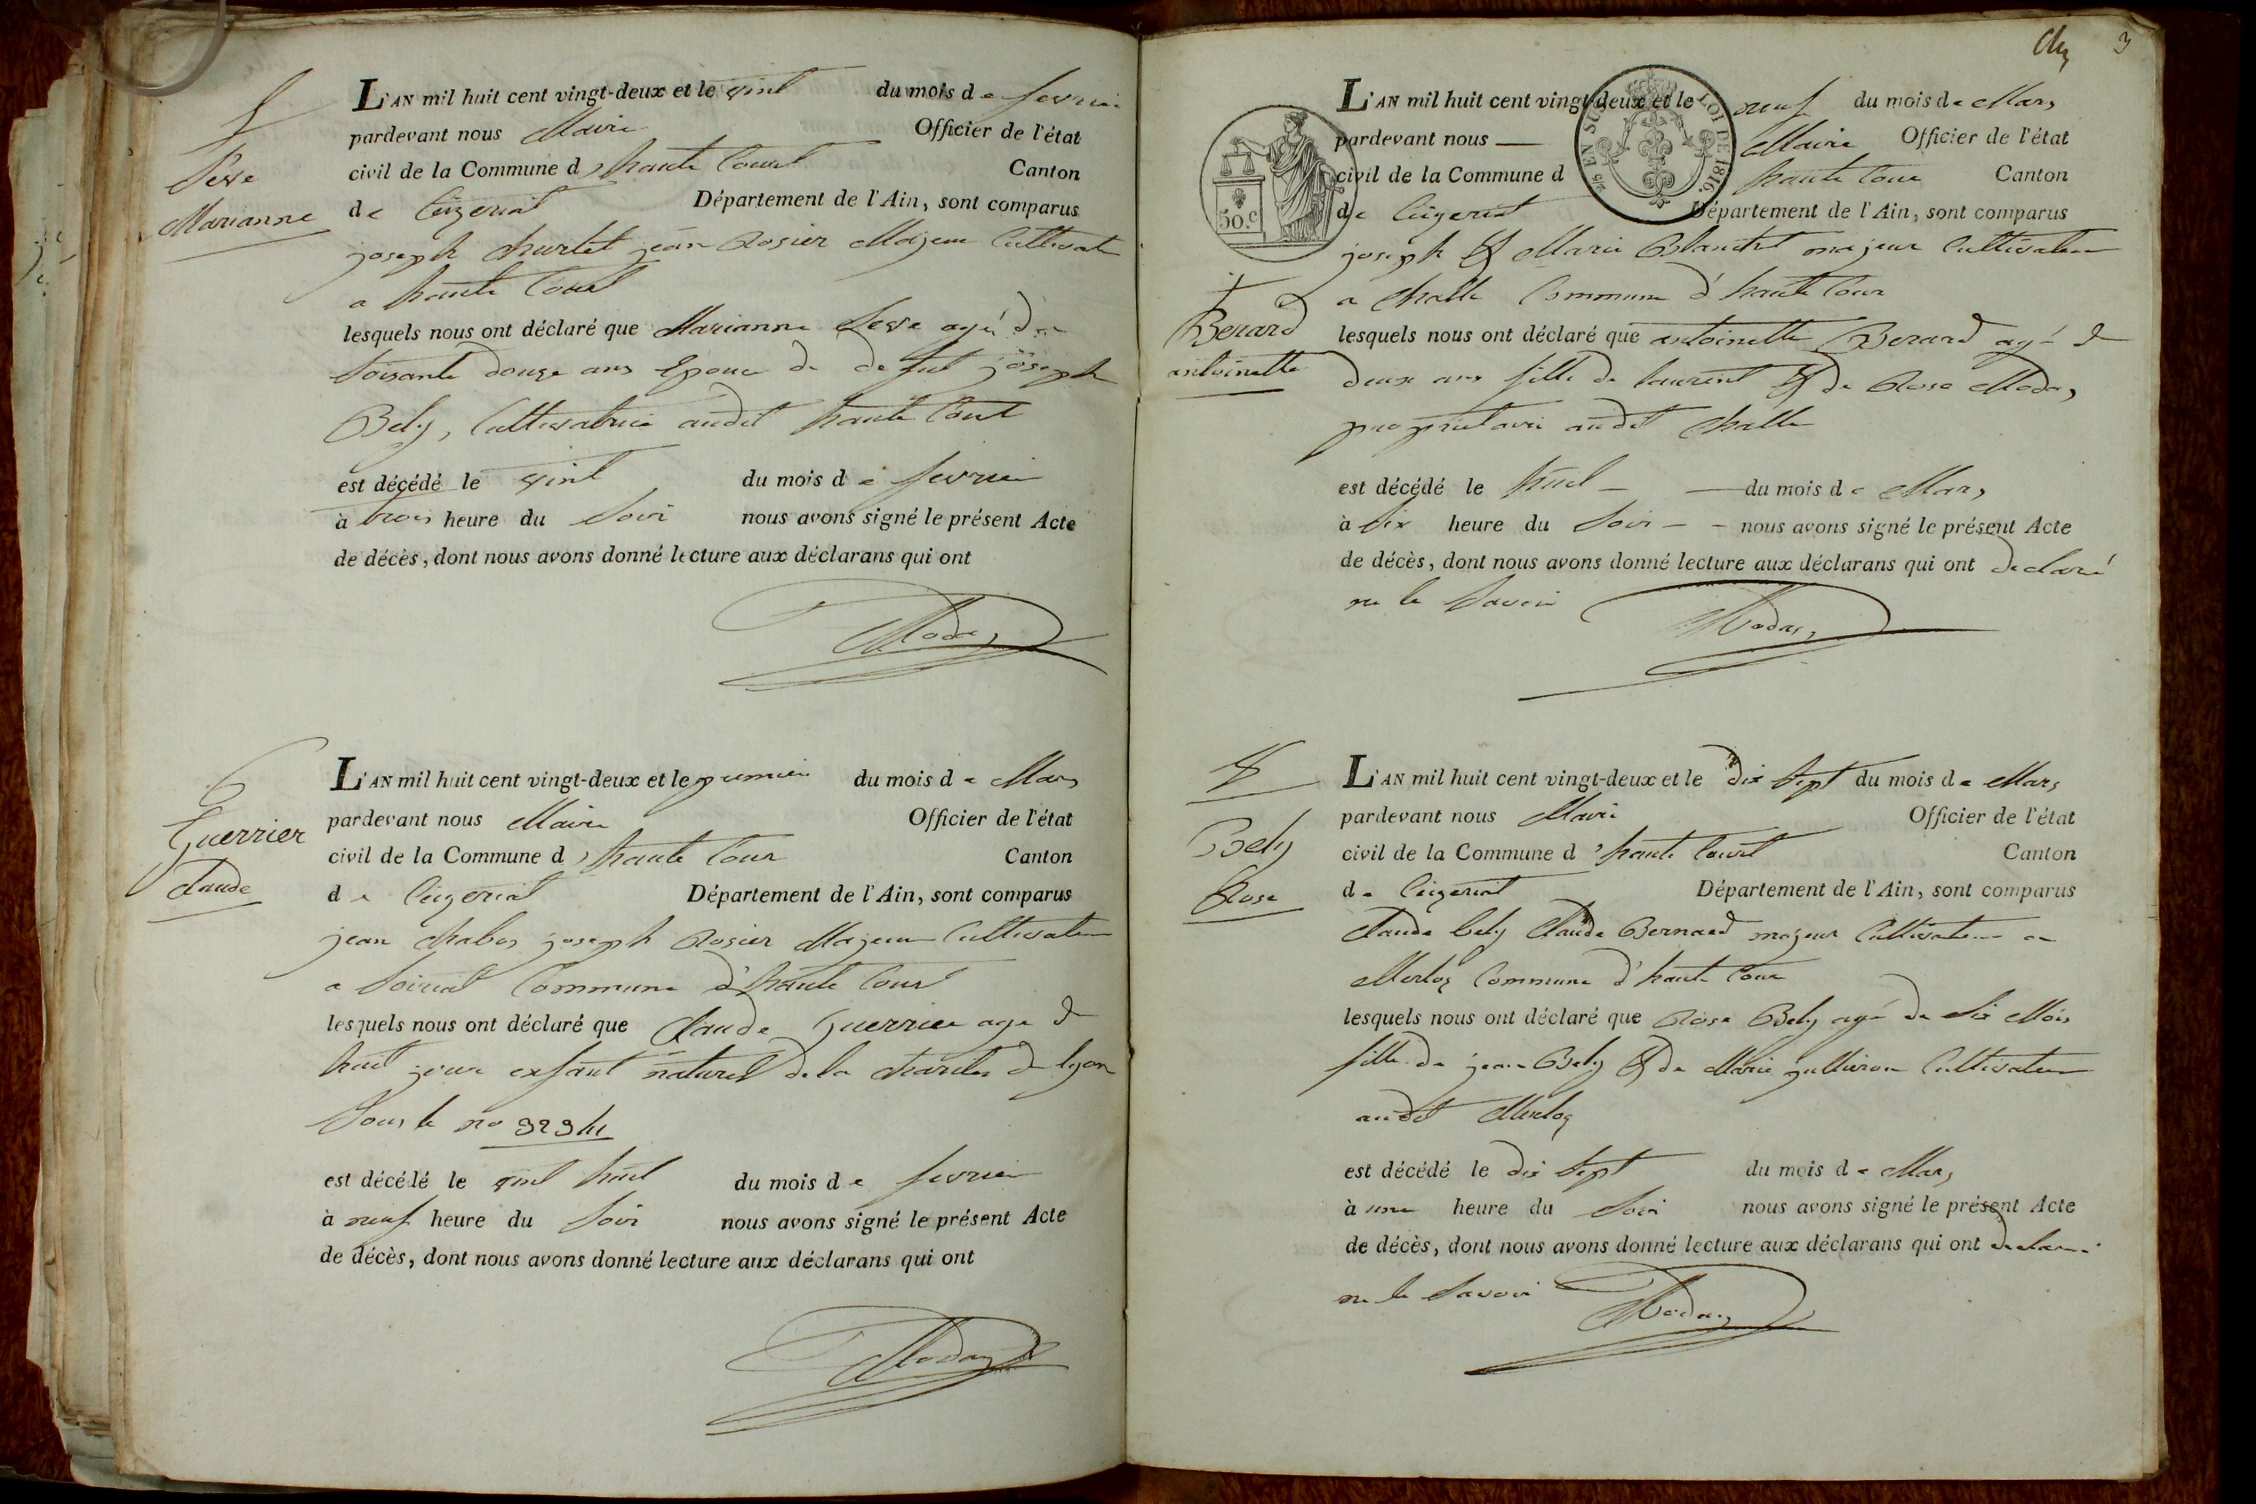 5
Seve
Marianne
L'AN mil huit cent vingt-deux et le vint du mois de fevrier
pardevant nous Maire Officier de l'état
civil de la Commune d'haute Court Canton
de Ceyzeriat Département de l'Ain, sont comparus
joseph churlet jean Rosier Majeur Cultivat
a haute Court
lesquels nous ont déclaré que Marianne Seve agé de
soisante douze ans Epouce de defut joseph
Bely, Cultivatrice audit haute Court
est décédé le vint du mois de fevrier
à trois heure du Soir nous avons signé le présent Acte
de décès, dont nous avons donné lecture aux déclarans qui ont
Modas
6
Guerrier
Claude
L'AN mil huit cent vingt-deux et le premier du mois de Mars
pardevant nous Maire Officier de l'état
civil de la Commune d'haute Cour Canton
de Ceyzeriat Département de l'Ain, sont comparus
jean Chabos joseph Rosier Majeur Cultivateur
a Soiriat Commune d'haute Court
lesquels nous ont déclaré que Claude Guerrier age de
huit jour enfant naturel de la charites de lyon
Sous le no
est décédé le vint huit du mois de fevrier
à neuf heure du Soir nous avons signé le présent Acte
de décès, dont nous avons donné lecture aux déclarans qui ont
Modas
3
50.c
EN SUS
LOI DE 1816.
7
Berard
antoinette
L'AN mil huit cent vingt-deux et le neuf du mois de Mars
pardevant nous Maire Officier de l'état
civil de la Commune d haute Cour Canton
de Ceyzeriat Département de l'Ain, sont comparus
joseph & Marie Blanchet majeur Cultivateur
a Challe Commune d'haute Cour
lesquels nous ont déclaré que antoinette Berard agé de
deux ans fille de laurent & de Rose Modas,
proprietaire audit Challe
est décédé le huit du mois de Mars
à six heure du Soir nous avons signé le présent Acte
de décès, dont nous avons donné lecture aux déclarans qui ont declaré
ne le Savoir
Modas
8
Bely
Rose
L'AN mil huit cent vingt-deux et le dix Sept du mois de Mars
pardevant nous Maire Officier de l'état
civil de la Commune d'haute Court Canton
de Ceyzeriat Département de l'Ain, sont comparus
Claude bely Claude Bernard majeur Cultivateur a
Merloz Commune d'haute Cour
lesquels nous ont déclaré que Rose Bely agé de Six Mois
fille de jean Bely & de Marie Cultivateur
audit Merloz
est décédé le dix Sept du mois de Mars
à une heure du Soir nous avons signé le présent Acte
de décès, dont nous avons donné lecture aux déclarans qui ont declaré
ne le Savoir
Modas